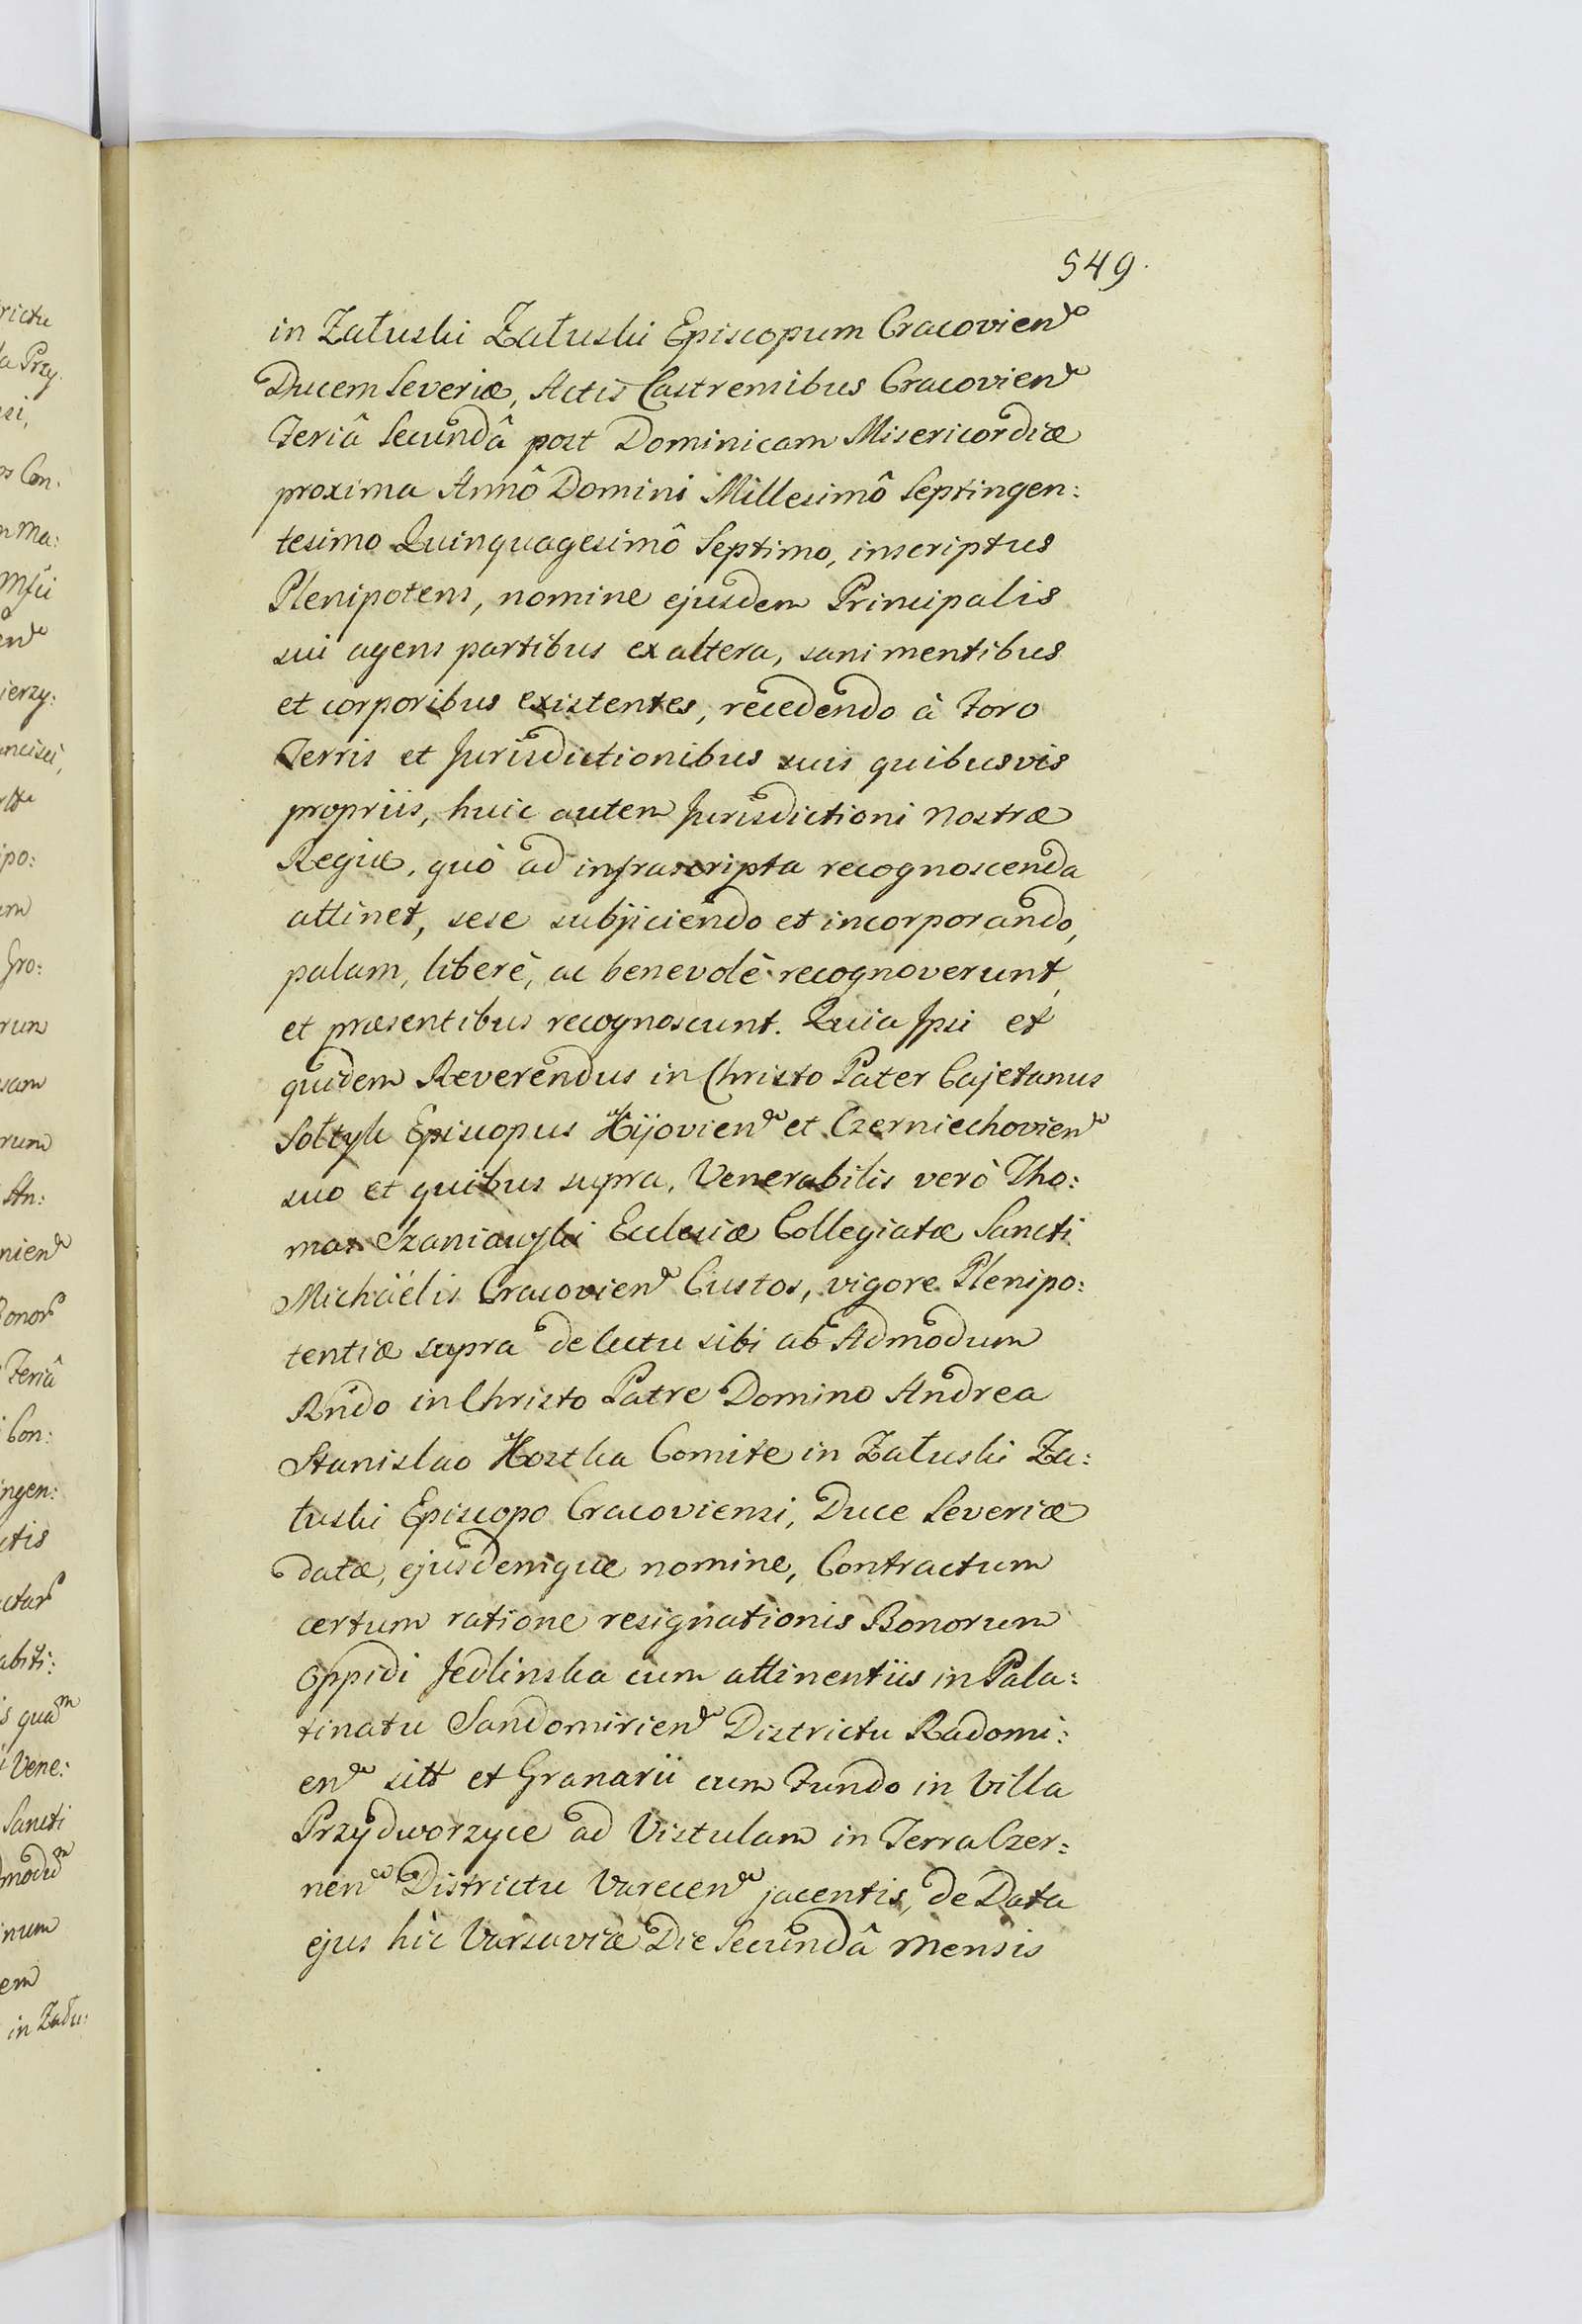 549.
in Załuski Załuski Episcopum Cracovien̄
Ducem Severiæ, Actis Castrensibus Cracovien̄
Feriâ Secundâ post Dominicam Misericordiæ
proxima Annô Domini Millesimô Septingen:
tesimo Quinquagesimô Septimo, inscriptus
Plenipotens, nomine ejusdem Principalis
sui agens partibus ex altera, sani mentibus
et corporibus existentes, recedendo à Foro
Terris et Jurisdictionibus suis quibusvis
propriis, huic autem Jurisdictioni nostræ
Regiæ, quò ad infrascripta recognoscenda
attinet, sese subjiciendo et incorporando,
palam, liberè, ac benevolè recognoverunt,
et præsentibus recognoscunt. Quia Ipsi et
quidem Reverendus in Christo Pater Cajetanus
Sołtyk Episcopus Kijovien̄ et Czerniechovien̄
suo et quibus supra, Venerabilis verò Tho:
mas Szaniawski Ecclesiæ Collegiatæ Sancti
Michaëlis Cracovien̄ Custos, vigore Plenipo:
tentiæ supra de lectu sibi ab Admodum
Rñdo in Christo Patre Domino Andrea
Stanislao Kostka Comite in Załuski Za:
łuski Episcopo Cracoviensi, Duce Severiæ
datæ, ejusdemque nomine, Contractum
certum ratione resignationis Bonorum
Oppidi Jedlinska cum attinentiis in Pala:
tinatu Sandomirien̄ Districtu Radomi:
en̄ sitt et Granarii cum Fundo in Villa
Przydworzyce ad Vistulam in Terra Czer:
nen̄ Districtu Varecen̄ jacentis, de Data
ejus hìc Varsaviæ Die Secundâ mensis